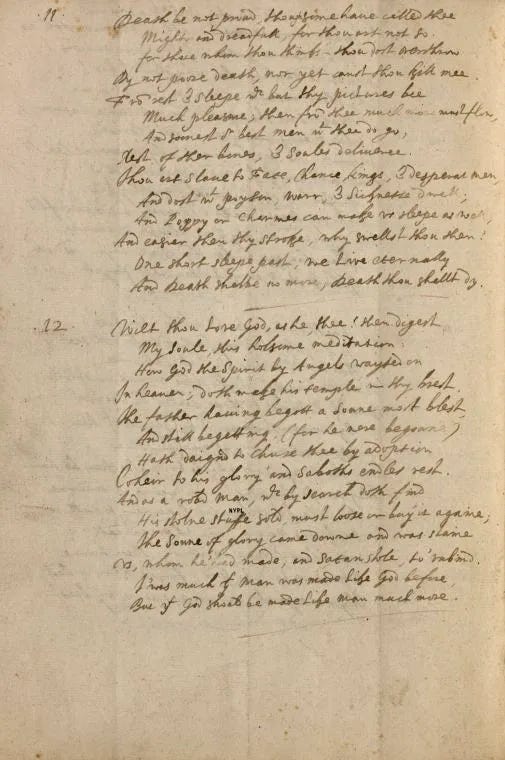 11
Death be not proud, though some haue called thee
Mighty and dreadfull, for thou art not so.
for those whom thou thinkst thou dost overthrow
Dy not poore death, nor yet canst thou kill mee.
From rest & sleepe wch but thy pictures bee
Much pleasure, then from thee much more must flow,
And soonest or best men wth thee do go,
Rest of ther bones, & Soules deliverie.
Thou art slave to Fate, chance, kings, & desperat men,
And dost wth poyson, warr, & sicknesse dwell,
And Poppy or Charmes can make vs sleepe as well,
And easier then thy stroke, why swellst thou then?
One short sleepe past, we live eternally
And Death shalbe no more, Death thou shallt dy.
12
Wilt thou Love God, as he thee! then digest
My Soule, this holsome meditation:
How God the Spirit by Angels wayted on
In heaven, doth make his temple in thy brest.
the father having begott a Sonne most blest,
And still begetting, (for he nere begonne)
Hath daignd to Chuse thee by adoption
Coheir to his glory and Saboths endles rest.
And as a robd man, wch by search doth find
His stolne stuffe sold, must loose or buy it againe;
NYPL
the Sonne of glory came downe and was slaine
vs, whom he had made, and Satan stole, to vnbind.
T'was much yt man was made like God before,
But yt God should be made like man much more.